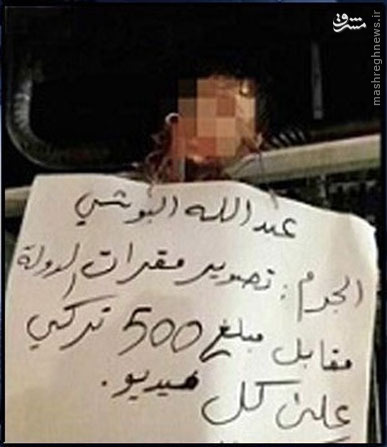 مشرق
mashreghnews.ir
عبدالله البوشي
الجرم: تصوير مقرات الدولة
مقابل مبلغ 500 تركي
على كل فيديو.